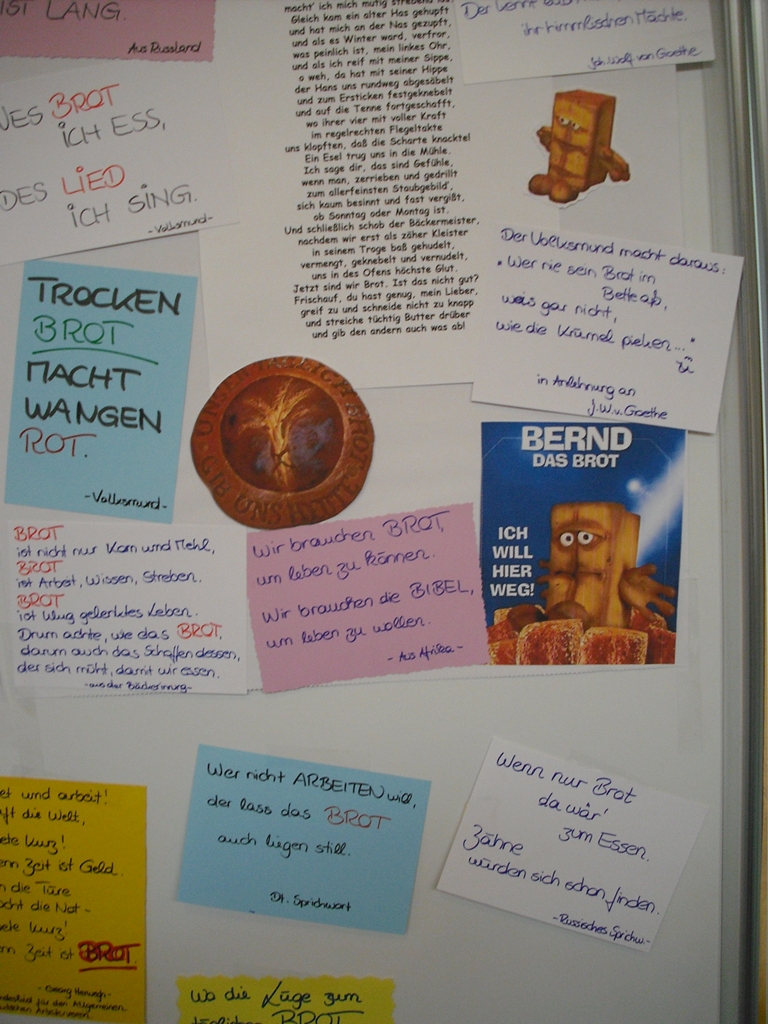 IST LANG.
Aus Russland
WES BROT
ICH ESS,
DES LIED
ICH SING.
-Volksmund-
macht' ich mich mutig strebend
Gleich kam ein alter Has gehupft
und hat mich an der Nas gezupft,
und als es Winter ward, verfror,
was peinlich ist, mein linkes Ohr,
und als ich reif mit meiner Sippe,
o weh, da hat mit seiner Hippe
der Hans uns rundweg abgesäbelt
und zum Ersticken festgeknebelt
und auf die Tenne fortgeschafft,
wo ihrer vier mit voller Kraft
im regelrechten Flegeltakte
uns klopften, daß die Scharte knackte!
Ein Esel trug uns in die Mühle.
Ich sage dir, das sind Gefühle,
wenn man, zerrieben und gedrillt
zum allerfeinsten Staubgebild',
sich kaum besinnt und fast vergißt,
ob Sonntag oder Montag ist.
Und schließlich schob der Bäckermeister,
nachdem wir erst als zäher Kleister
in seinem Troge baß gehudelt,
vermengt, geknebelt und vernudelt,
uns in des Ofens höchste Glut.
Jetzt sind wir Brot. Ist das nicht gut?
Frischauf, du hast genug, mein Lieber,
greif zu und schneide nicht zu knapp
und streiche tüchtig Butter drüber
und gib den andern auch was ab!
Der kennt
ihr himmlischen Mächte.
Joh. Wolf. von Goethe
Der Volksmund macht daraus:
"Wer nie sein Brot im
Bette aß,
weis gar nicht,
wie die Krümel pieken..."
in Anlehnung an
J.W.v. Goethe
TROCKEN
BROT
MACHT
WANGEN
ROT.
-Volksmund-
UNSER TÄGLICH BROT
GIB UNS HEUTE
BERND
DAS BROT
ICH
WILL
HIER
WEG!
BROT
ist nicht nur Korn und Mehl,
BROT
ist Arbeit, Wissen, Streben.
BROT
ist klug gelenktes Leben.
Drum achte, wie das BROT,
darum auch das Schaffen dessen,
der sich müht, damit wir essen.
-aus der Bäckerinnung-
Wir brauchen BROT,
um leben zu können.
Wir brauchen die BIBEL,
um leben zu wollen.
- Aus Afrika -
et und arbeit!
ft die Welt,
ete kurz!
nn Zeit ist Geld.
n die Türe
ocht die Not-
ete kurz!
nn Zeit ist BROT.
- Georg Herwegh-
für den Allgemeinen
Wer nicht ARBEITEN will,
der lass das BROT
auch liegen still.
Dt. Sprichwort
Wenn nur Brot
da wär'
zum Essen.
Zähne
würden sich schon finden.
-Russisches Sprichw.-
Wo die Lüge zum
täglichen BROT